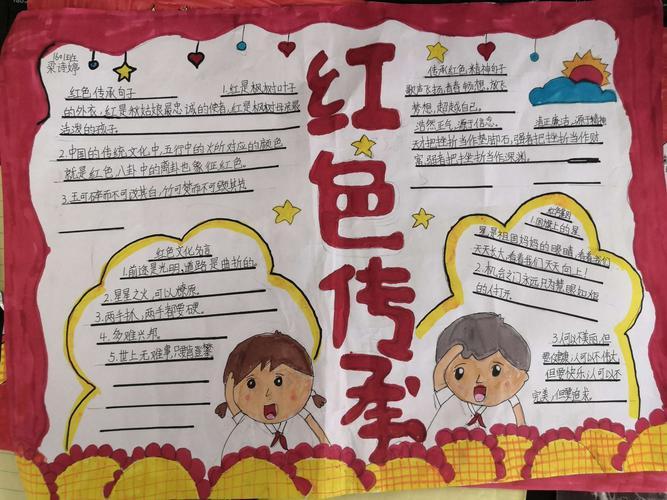 梁诗婷
红色传承
红色传承句子
1.红是枫树对叶子
的外衣,红是秋姑娘最忠诚的使者,红是枫树母亲最
活泼的孩子。
2.中国的传统文化中,五行中的火所对应的颜色
就是红色,八卦中的离卦也象征红色。
3.玉可碎而不可改其白,竹可焚而不可毁其节
传承红色精神句子
歌声飞扬,青春畅想,放飞
梦想,超越自己。
浩然正气,源于信念。
清正廉洁,源于精神
天才把挫折当作垫脚石,强者把挫折当作财
富,弱者把挫折当作深渊。
红色文化名言
1.前途是光明,道路是曲折的。
2.星星之火,可以燎原。
3.两手抓,两手都要硬。
4.多难兴邦。
5.世上无难事,只要肯登攀
1.国旗上的星
星是祖国妈妈的眼睛,看着我们
天天长大,看着我们天天向上!
2.机会之门永远只为慧眼如炬
的人打开。
3.人可以不美丽,但
要健康;人可以不伟大,
但要快乐;人可以不
完美,但要追求。